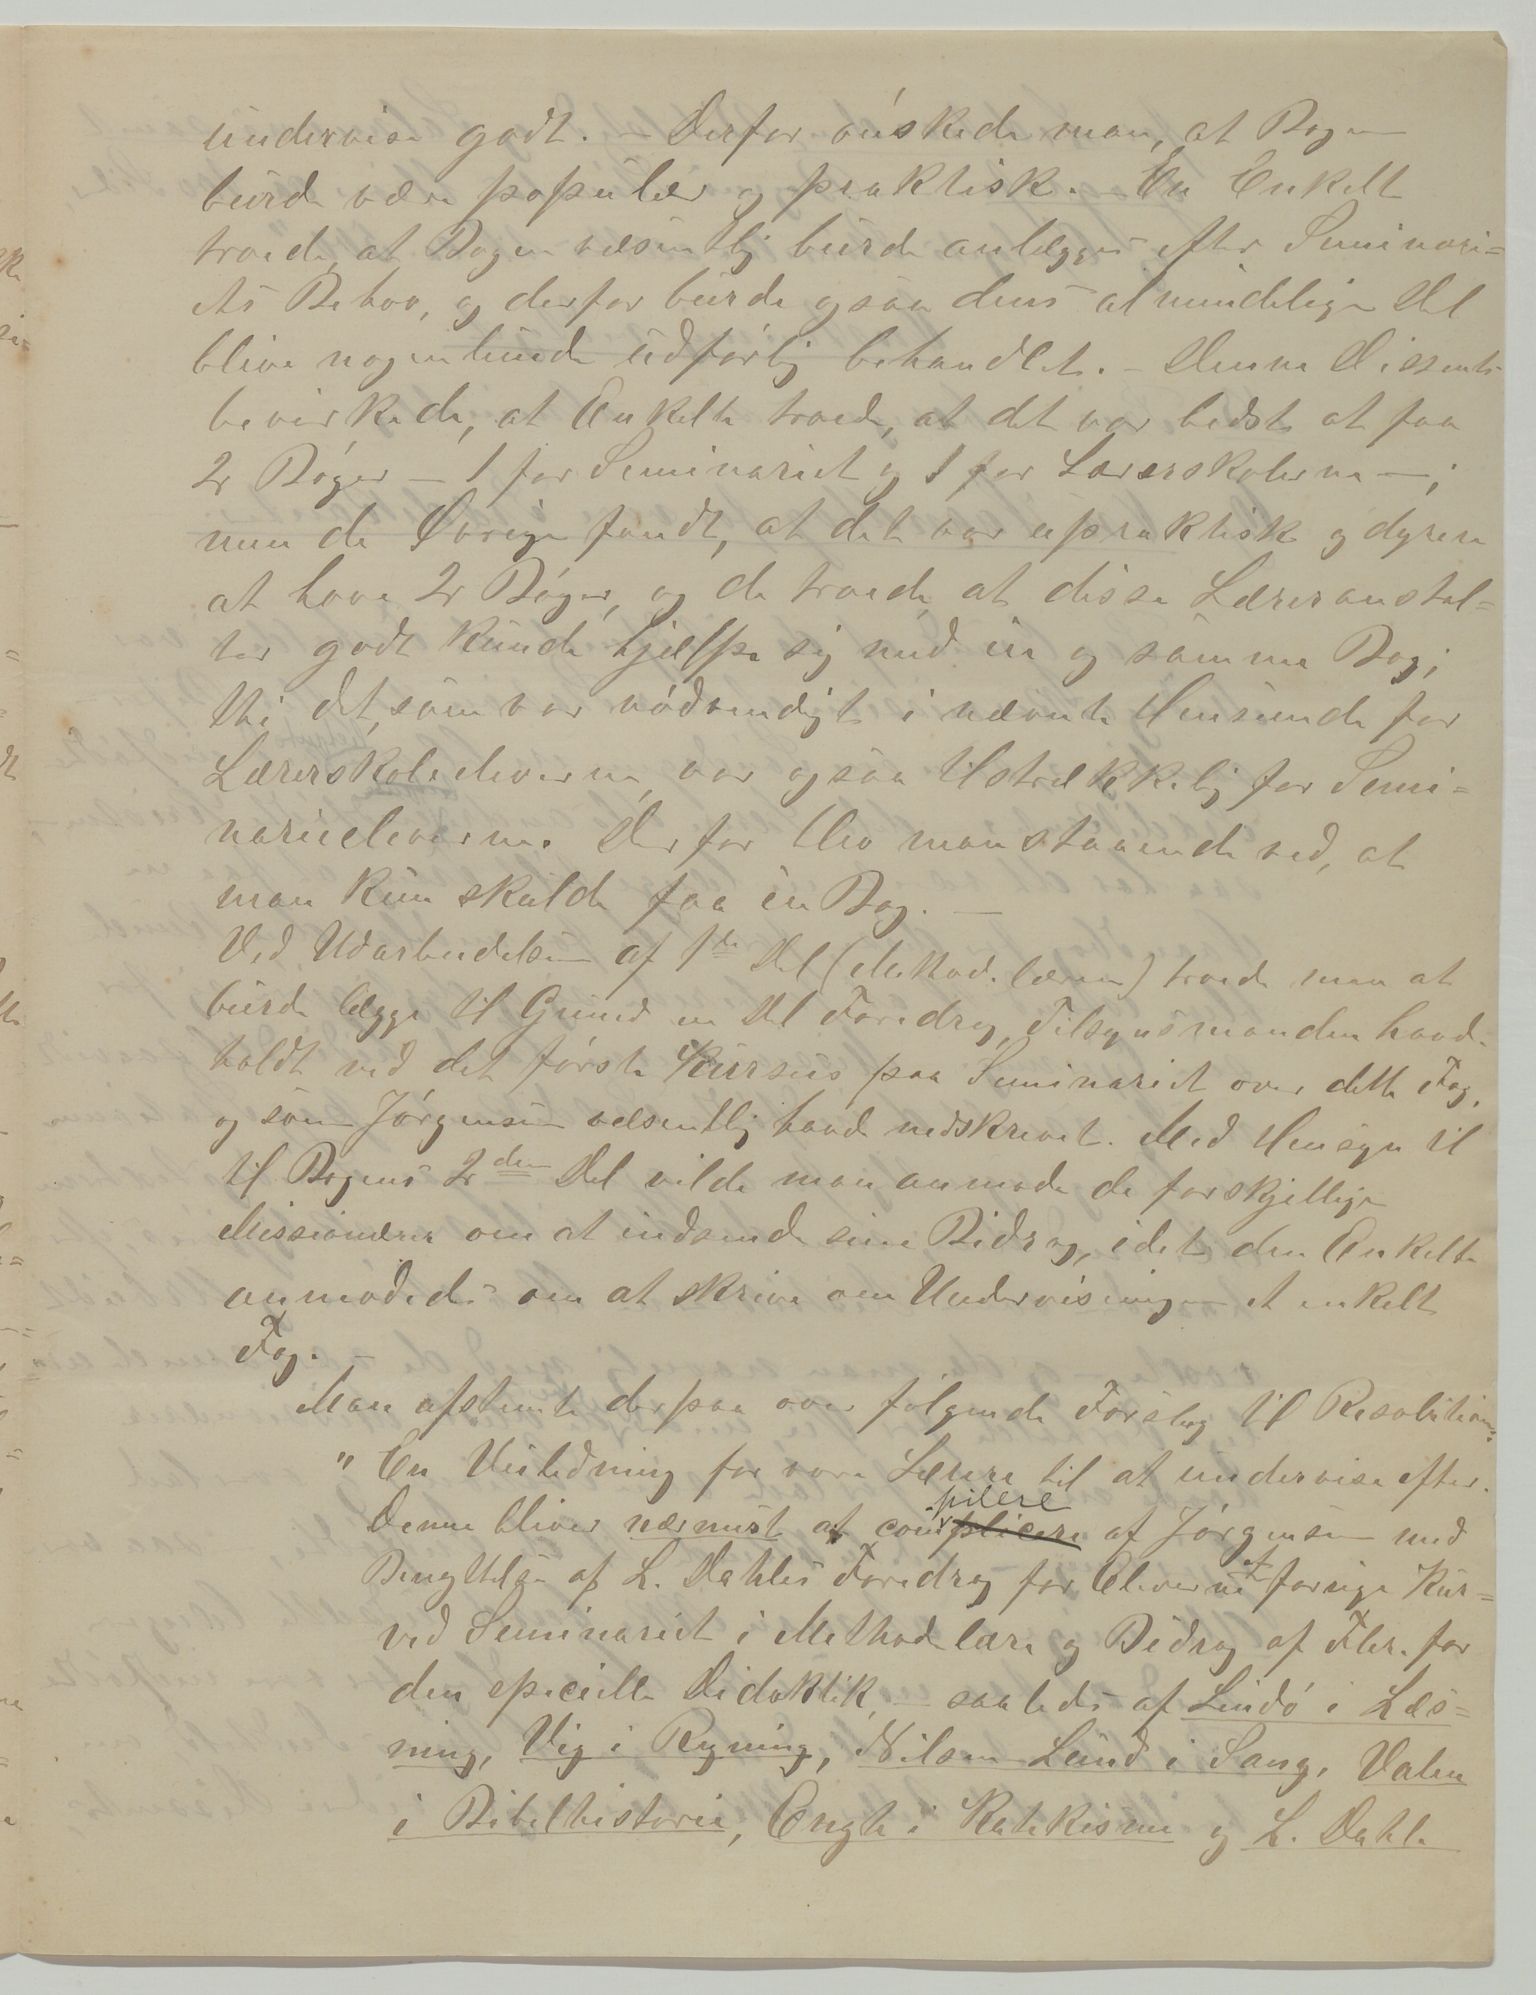 undervise godt. – Derfor ønskede man, at Bogen
burde være populær og praktisk. – En Enkelt
troede, at Bogen væsentlig burde anlægges efter Seminari=
ets Behov, og derfor burde ogsaa dens almindelige Del
blive nogenlunde udførlig behandlet. – Denne Dissents
bevirkede, at Enkelte troede, at det var bedst at faa
2 Bøger – 1 for Seminariet og 1 for Lærerskolerne –;
men de Øvrige fandt, at det var upraktisk og dyrere
at have 2 Bøger, og de troede, at disse Læreranstal=
ter godt kunde hjælpe sig med én og samme Bog;
thi det, som var nødvendigt i nævnte Henseende for
Lærerskoleeleverne, var ogsaa tilstrækkelig for Semi=
narieeleverne. Derfor blev man staaende ved, at
man kun skulde faa én Bog. –
Ved Udarbeidelsen af 1ste Del (Method. læren) troede man at
burde lægge til Grund en Del Foredrag, Tilsynsmanden havde
holdt ved det første Kursus paa Seminariet over dette Fag,
og som Jørgensen væsentlig havde nedskrevet. Med Hensyn til
til Bogens 2den Del vilde man anmode de forskjellige
Missionærer om at indsende sine Bidrag, idet den Enkelte
anmodedes om at skrive om Undervisningen et enkelt
Fag. –
Man afstemte derpaa over følgende Forslag til Resolution:
" En Veiledning for vore Lærere til at undervise efter.
Denne bliver nærmest at com plicere pilere af Jørgensen med
Benyttelse af L. Dahles Foredrag for Eleverne af forrige Kur=
ved Seminariet i Methodelære og Bidrag af Flere for
den specielle Didaktik, – saaledes af Lindø i Læs=
ning, Vig i Regning, Nilsen Lund i Sang, Valen
i Bibelhistorie, Engh i Katekisme og L. Dahle